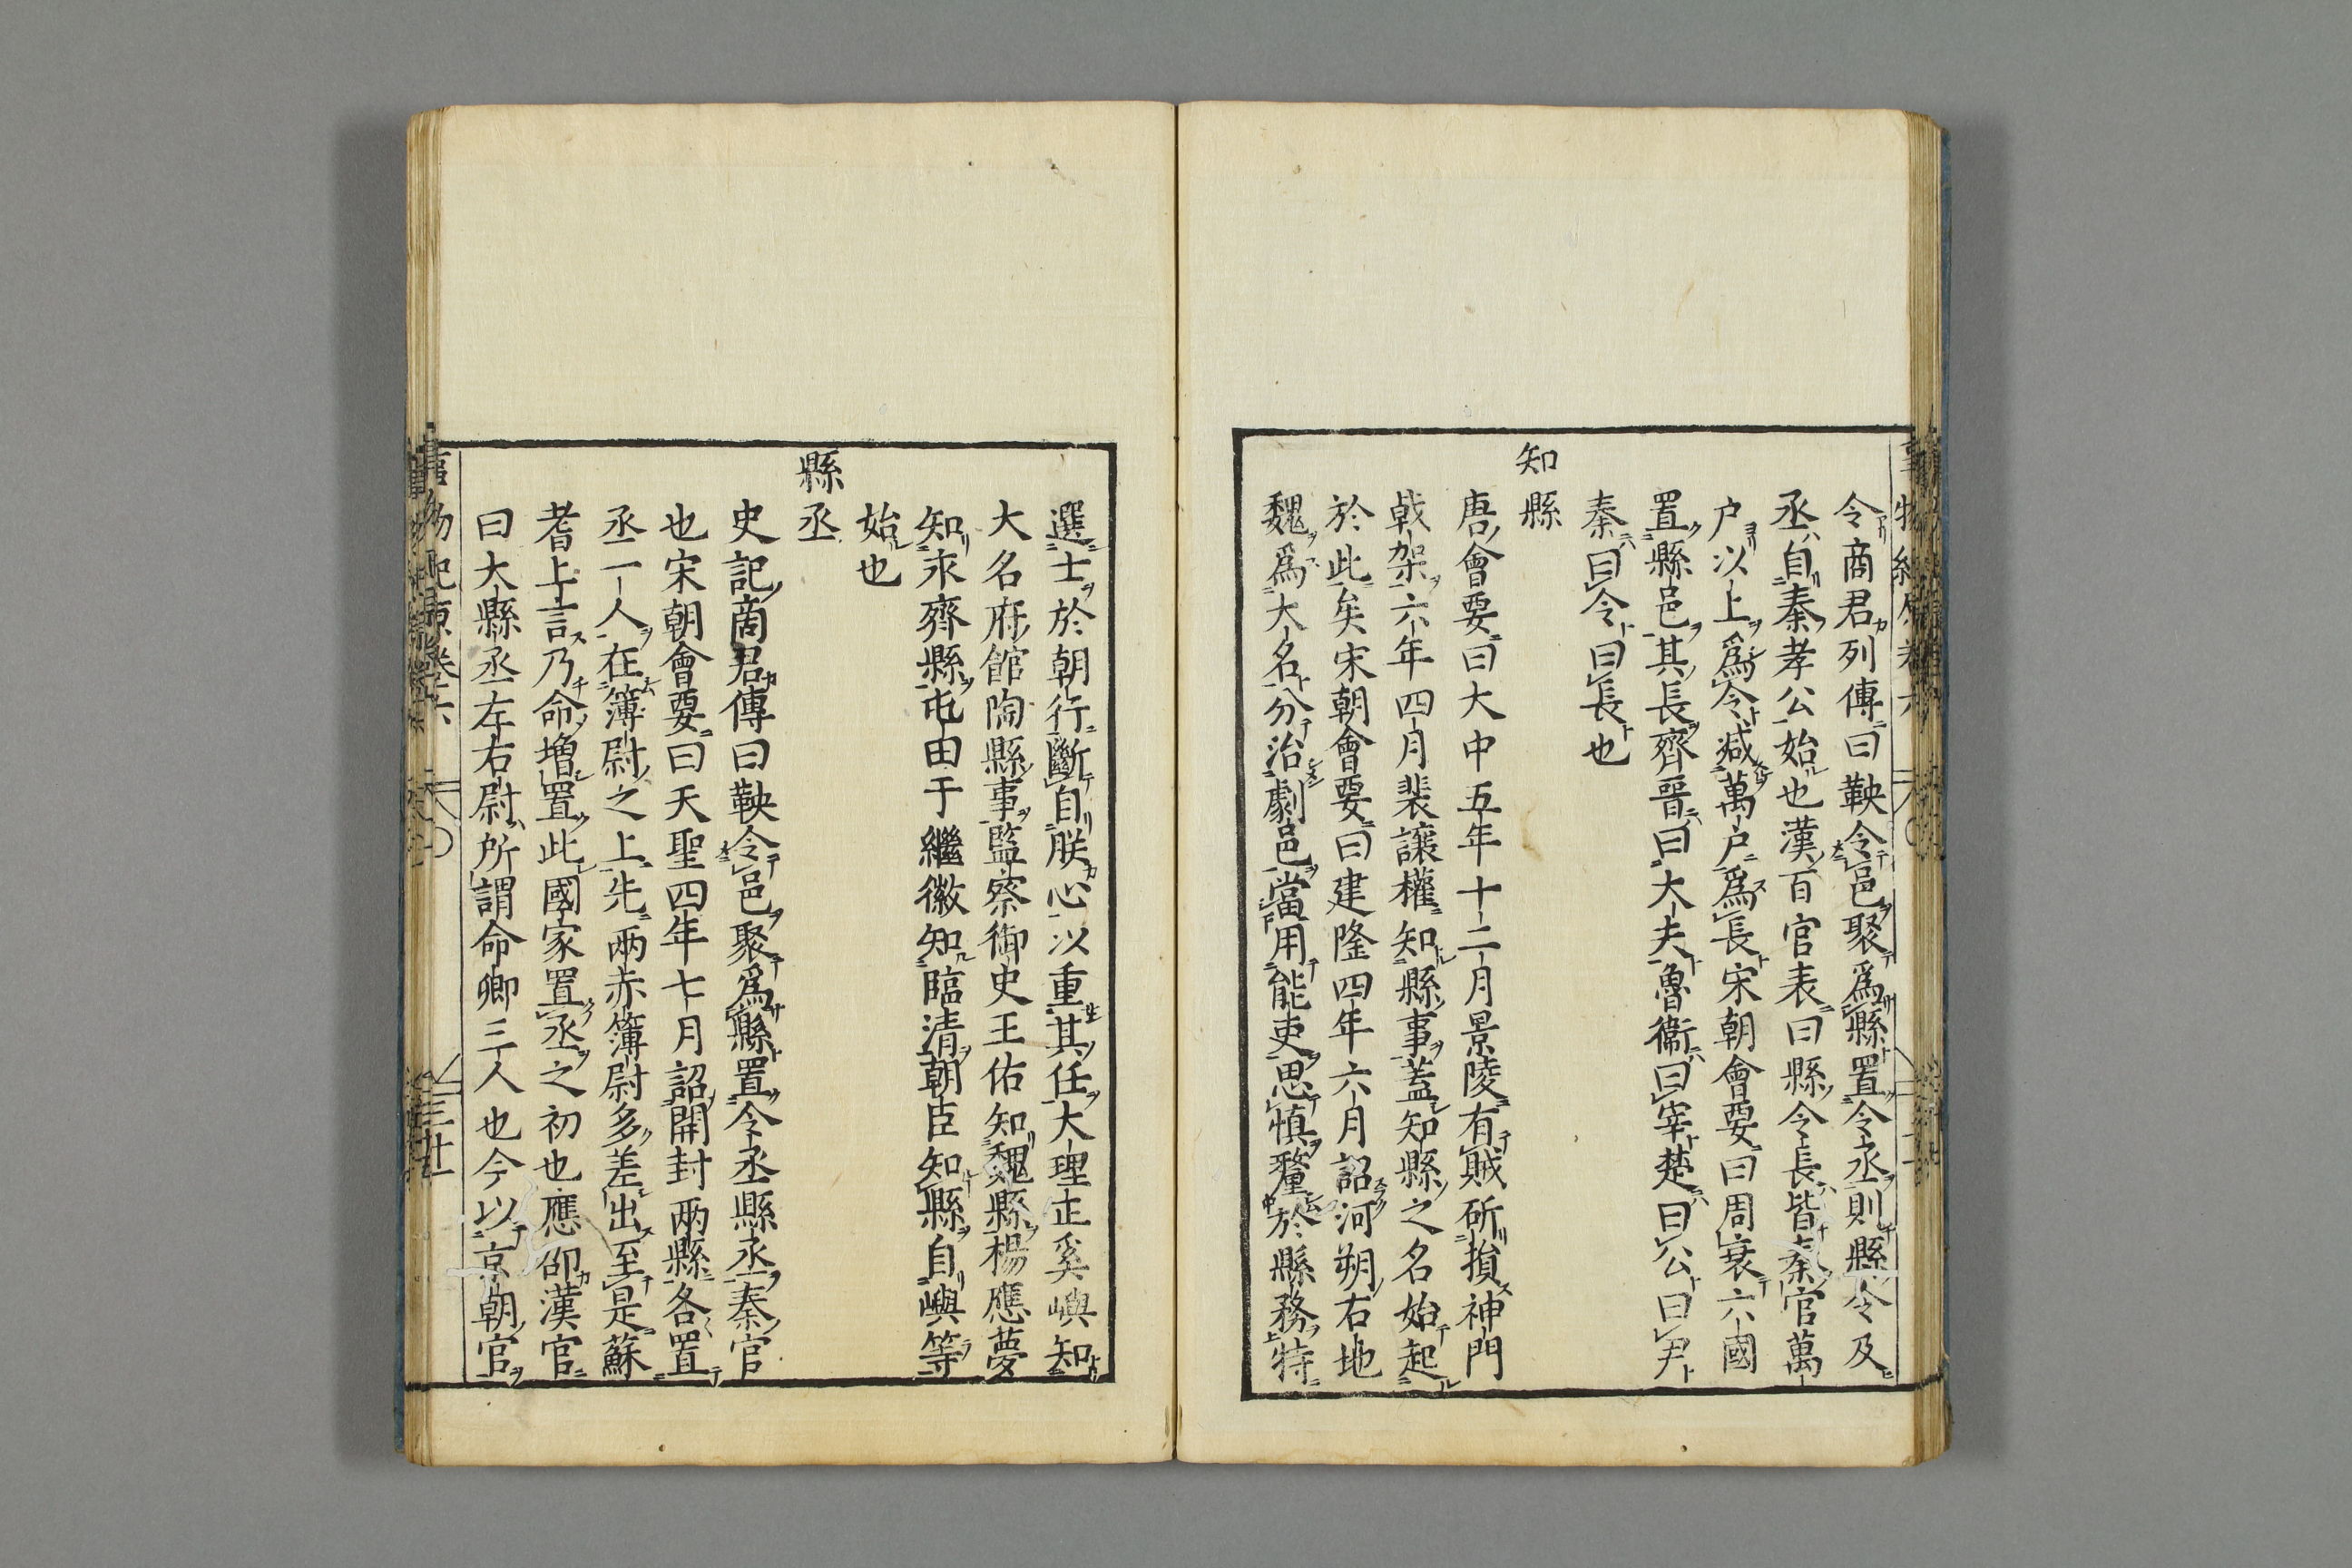 令商君列傳曰鞅令邑聚爲縣置令丞則縣令及
丞自秦孝公始也漢百官表曰縣令長皆秦官萬
户以上爲令減萬户爲長宋朝會要曰周衰六國
置縣邑其長齊晉曰大夫魯衞曰宰楚曰公曰尹
秦曰令曰長也
知縣
唐會要曰大中五年十二月景陵有賊斫損神門
戟架六年四月裴讓權知縣事蓋知縣之名始起
於此矣宋朝會要曰建隆四年六月詔河朔右地
魏爲大名分治劇邑當用能吏思慎釐於縣務特
選士於朝行斷自朕心以重其任大理正奚嶼知
大名府館陶縣事監察御史王佑知魏縣楊應夢
知永齊縣屯田于繼徽知臨清朝臣知縣自嶼等
始也
縣丞
史記商君傳曰鞅令邑聚爲縣置令丞縣丞秦官
也宋朝會要曰天聖四年七月詔開封兩縣各置
丞一人在簿尉之上先兩赤簿尉多差出至是蘇
耆上言乃命増置此國家置丞之初也應卲漢官
曰大縣丞左右尉所謂命卿三人也今以京朝官
事物紀原卷六
三廿